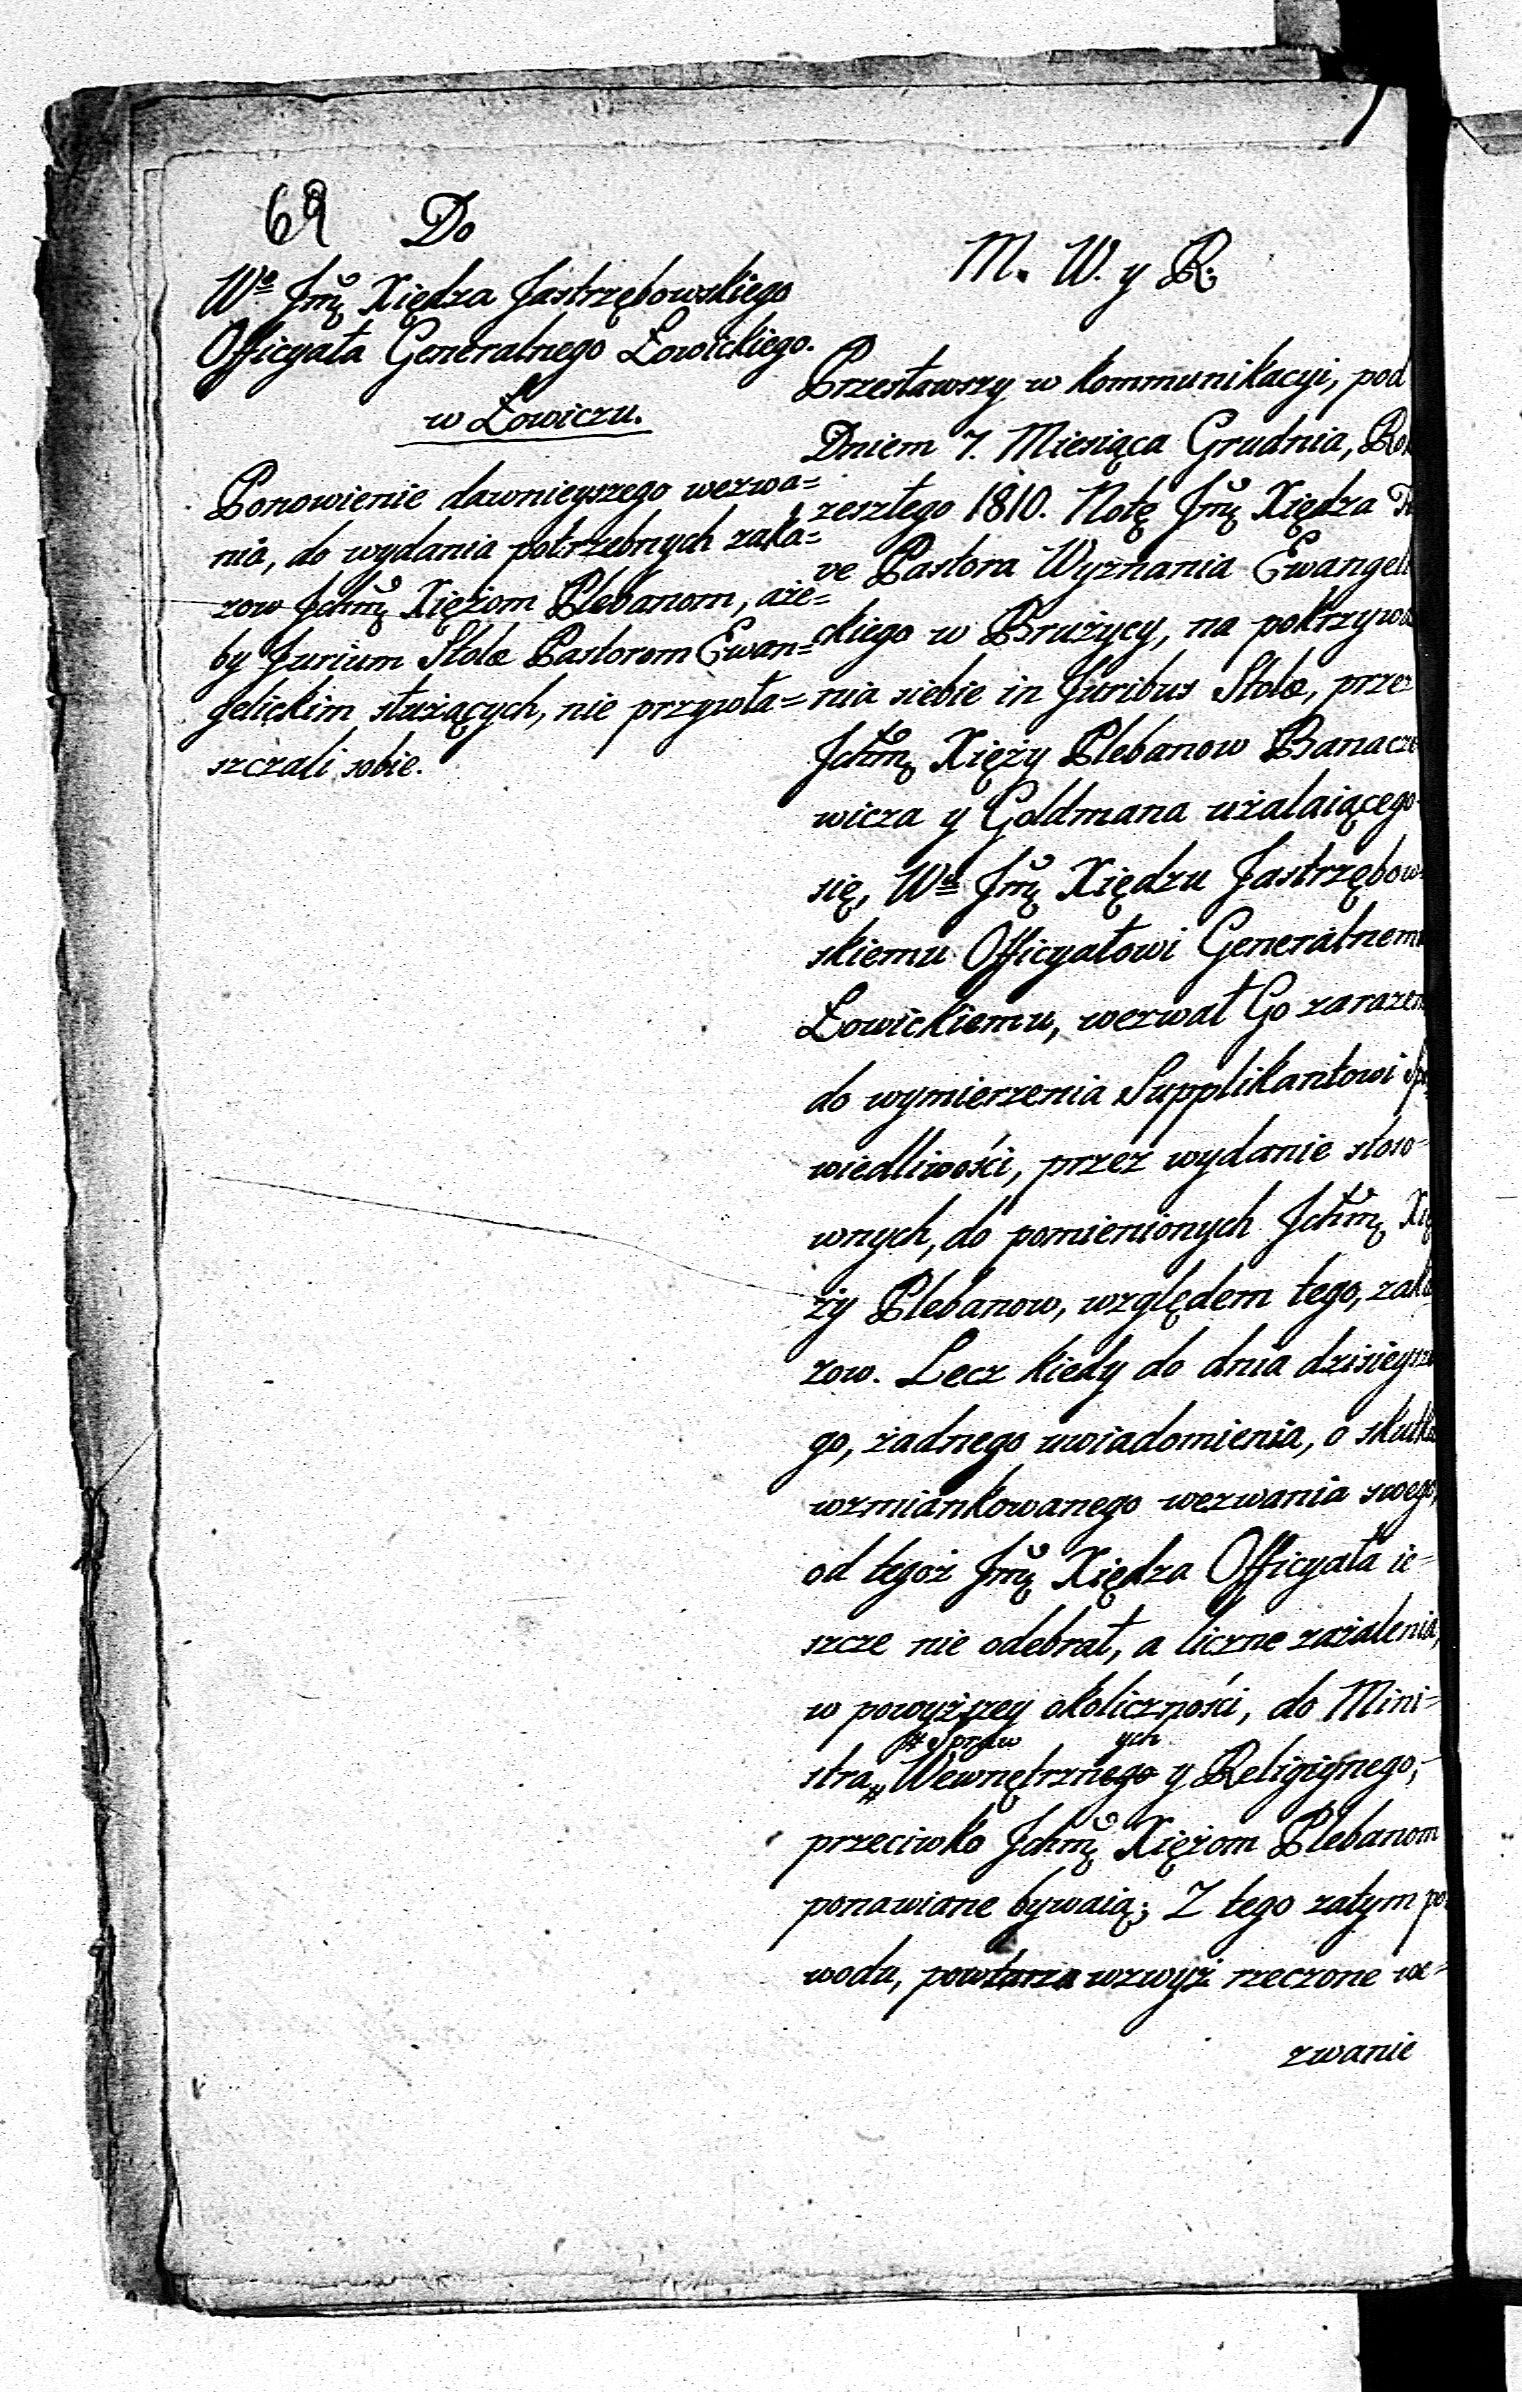 69
Do
Wo Jmę Xiędza Jastrzębowskiego
Officyała Generalnego Łowickiego.
w Łowiczu.
Ponowienie dawnieyszego wezwa=
nia, do wydania potrzebnych zaka=
zow Jchmę Xiężom Plebanom, aże=
by Jurium Stolæ Pastorom Ewan=
gelickim służących, nie przywła=
szczali sobie.
M. W. y R.
Przesławszy w kommunikacyi, pod
Dniem 7. Miesiąca Grudnia, Ro
zeszłego 1810. Notę Jmę Xiędza
ve Pastora Wyznania Ewangeli
ckiego w Brużycy, na pokrzywd
nia siebie in Juribus Stolæ, przez
Jchmę Xięży Plebanow Banacze
wicza y Goldmana użalaiącego
się, Wu Jmę Xiędzu Jastrzębow
skiemu Officyałowi Generalnemu
Łowickiemu, wezwał Go zarazem
do wymierzenia Supplikantowi Sp
wiedliwości, przez wydanie stoso=
wnych, do pomienionych Jchmę Xię
ży Plebanow, względem tego, zaka
zow. Lecz kiedy do dnia dzisieysze
go, żadnego uwiadomienia, o skutku
wzmiankowanego wezwania swego,
od tegoż Jmę Xiędza Officyała ie=
szcze nie odebrał, a liczne zażalenia,
w powyższey okoliczności, do Mini=
# Spraw ych
stra # Wewnętrznego y Religiynego,
przeciwko Jchmę Xiężom Plebanom
ponawiane bywaią; Z tego zatym po
wodu, powtarza wzwyż rzeczone we=
zwanie